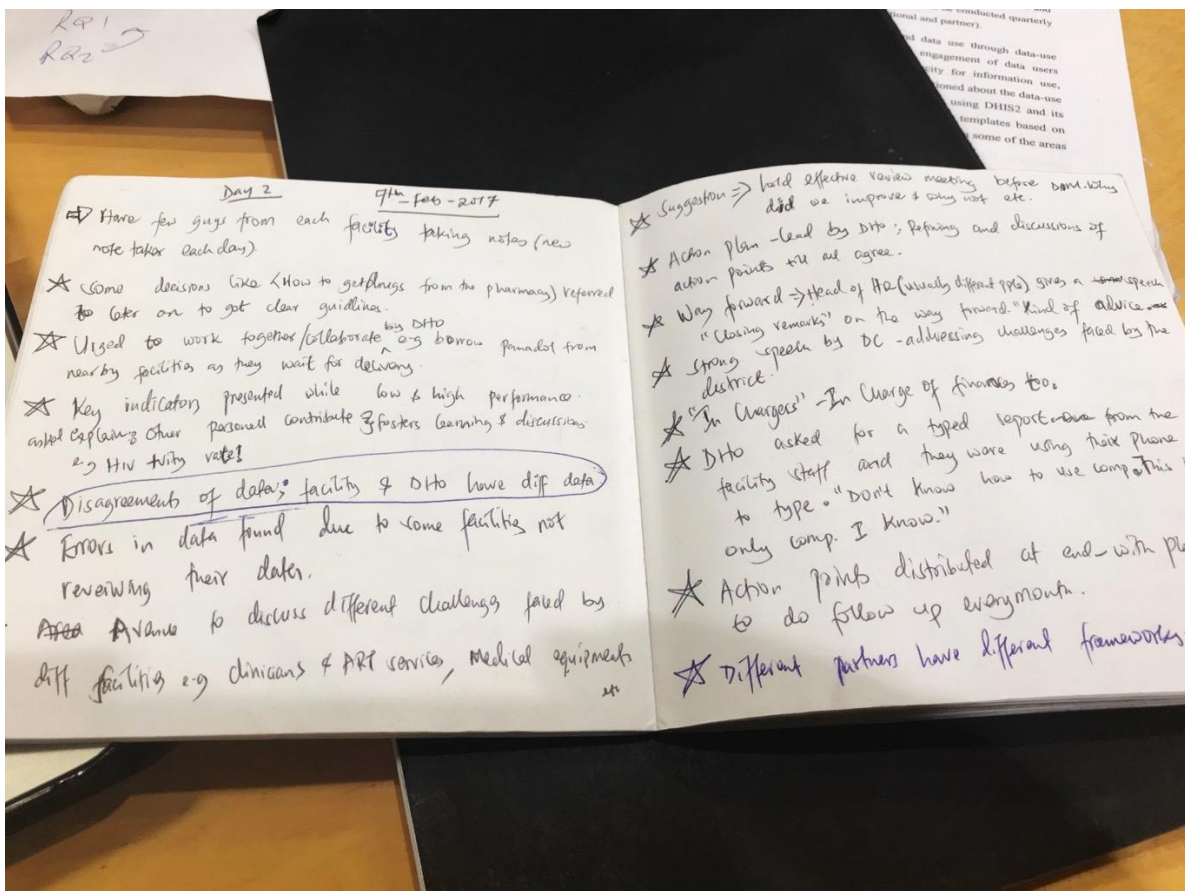 RQ1
RQ2
conducted quarterly
ional and partner).
d data use through data-use
engagement of data users
city for information use,
ioned about the data-use
using DHIS2 and its
templates based on
some of the areas
Day 2 7th-Feb-2017
⇒ Have few guys from each facility taking notes (new
note taker each day).
☆ Some decisions like <How to get drugs from the pharmacy> referred
to later on to get clear guidlines.
☆ Urged to work together/collaborate by DHO e.g borrow panadol from
nearby facilities as they wait for delivery.
☆ Key indicators presented while low & high performance.
asked explain; Other personell contribute & fosters learning & discussions
e.g HIV tvity rates
☆ Disagreements of data; facility & DHO have diff data
☆ Errors in data found due to some facilities not
reveiwing their data.
Avenue to discuss different challenges faced by
diff facilities e.g clinicians & ART services, medical equipments
etc
☆ Suggestion ⇒ hold effective review meeting before DRM. Why
did we improve & why not etc.
☆ Action plan - lead by DHO; Refining and discussions of
action points till all agree.
☆ Way forward ⇒ Head of HR (usually different pple) gives a speech
"Closing remarks" on the way forward. "Kind of advice
☆ strong speech by DC - addressing challenges faced by the
district.
☆ "In Chargers" - In Charge of finances too.
☆ DHO asked for a typed report from the
facility staff and they were using their phone
to type. "Don't know how to use comp. This
only comp. I know."
☆ Action points distributed at end - with pl
to do follow up everymonth.
☆ Different partners have different frameworks